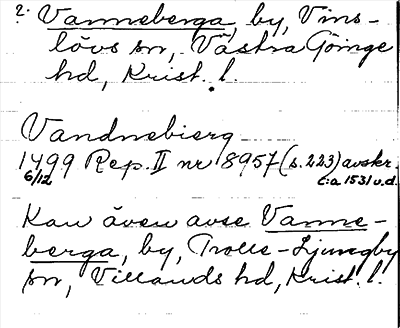 2. Vanneberga, by, Vins-
lövs sn, Västra Göinge
hd, Krist. l.
Vandnebierg
1499 Rep. II nr 8957 (s. 223) avskr.
6/12 c:a 1531 u.d.
Kan även avse Vanne-
berga, by, Trolle-Ljungby
sn, Villands hd, Krist. l.